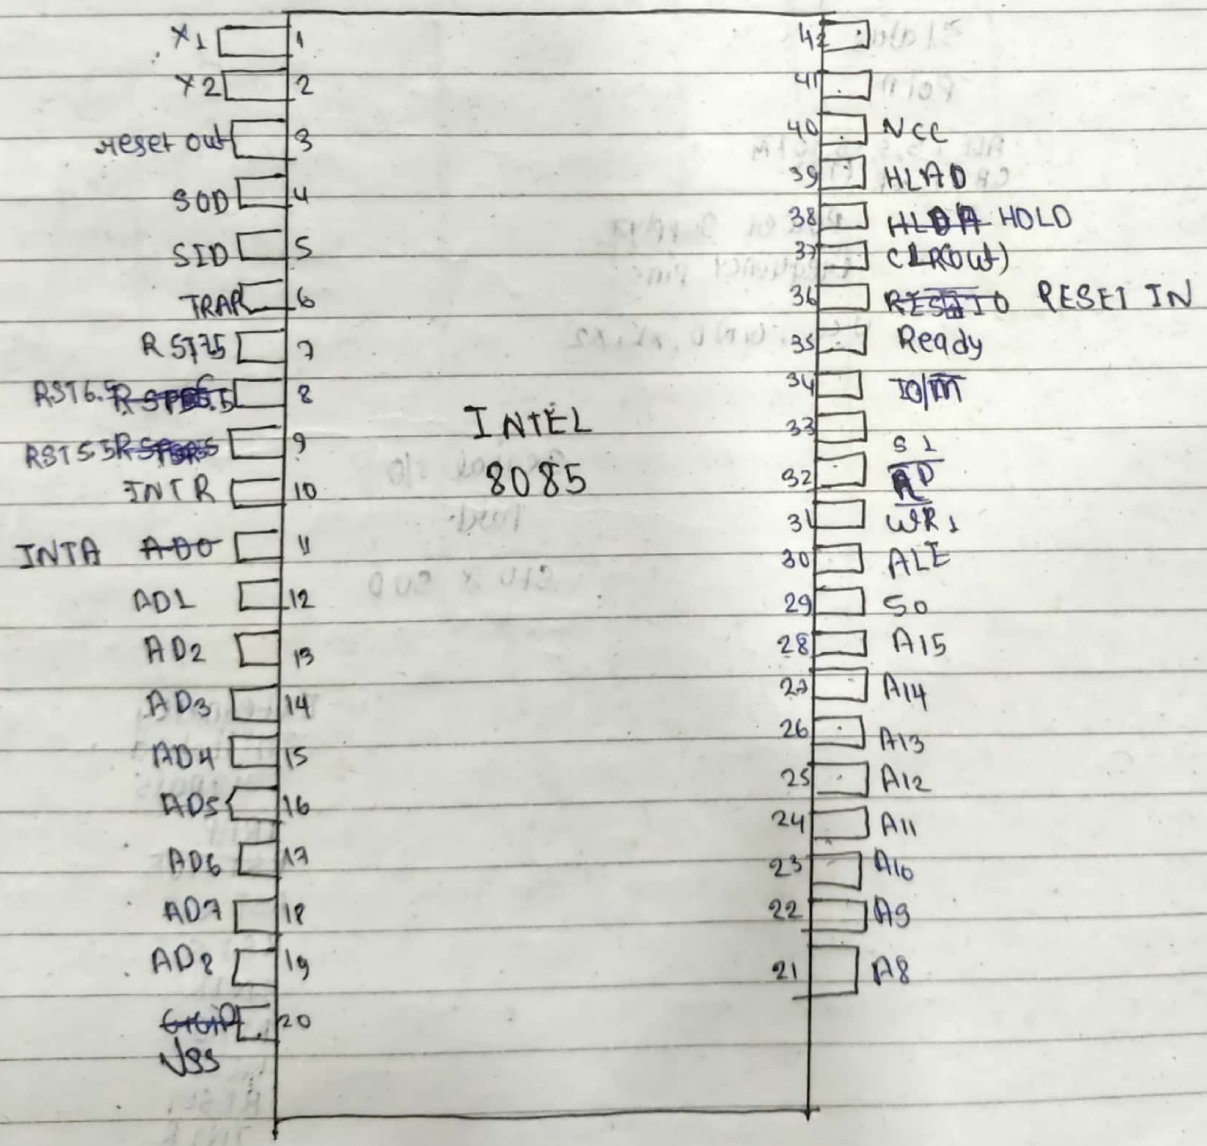 X1 1
X2 2
reset out 3
SOD 4
SID 5
TRAP 6
RST75 7
RST6.5 8
RST55 9
INTR 10
INTA ADO 11
AD1 12
AD2 13
AD3 14
AD4 15
AD5 16
AD6 17
AD7 18
AD8 19
20
VSS
INTEL
8085
42
41
40 NCC
39 HLAD
38 HLDA HOLD
37 CLR(out)
36 RESET IN
35 Ready
34 IO/M̅
33
S1
32 R̅D̅
31 W̅R̅1
30 ALE
29 S0
28 A15
27 A14
26 A13
25 A12
24 A11
23 A10
22 A9
21 A8